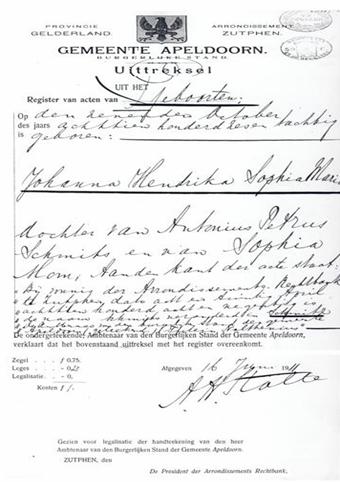 PROVINCIE GELDERLAND.
ARRONDISSEMENT ZUTPHEN.
GEMEENTE APELDOORN.
BURGERLIJKE STAND.
Uittreksel
UIT HET
Register van acten van Geboorten.
Op den October
des jaars achttien honderd zes en tachtig
is geboren:
Johanna Hendrika Sophia Maria
dochter van Antonius Petrus
Schmits en van Sophia
Mom, Aan den kant der acte staat:
Arrondissements Rechtbank
te Zutphen, dato acht en twintig April
achttien honderd acht en negentig is
De ondergeteekende, Ambtenaar van den Burgerlijken Stand der Gemeente Apeldoorn,
verklaart dat het bovenstaand uittreksel met het register overeenkomt.
Zegel . . f 0.75.
Leges . . -0.25
Legalisatie - 0.
Kosten f 1.
Afgegeven 16 Juni 1911
Gezien voor legalisatie der handteekening van den heer
Ambtenaar van den Burgerlijken Stand der Gemeente Apeldoorn.
ZUTPHEN, den
De President der Arrondissements Rechtbank,